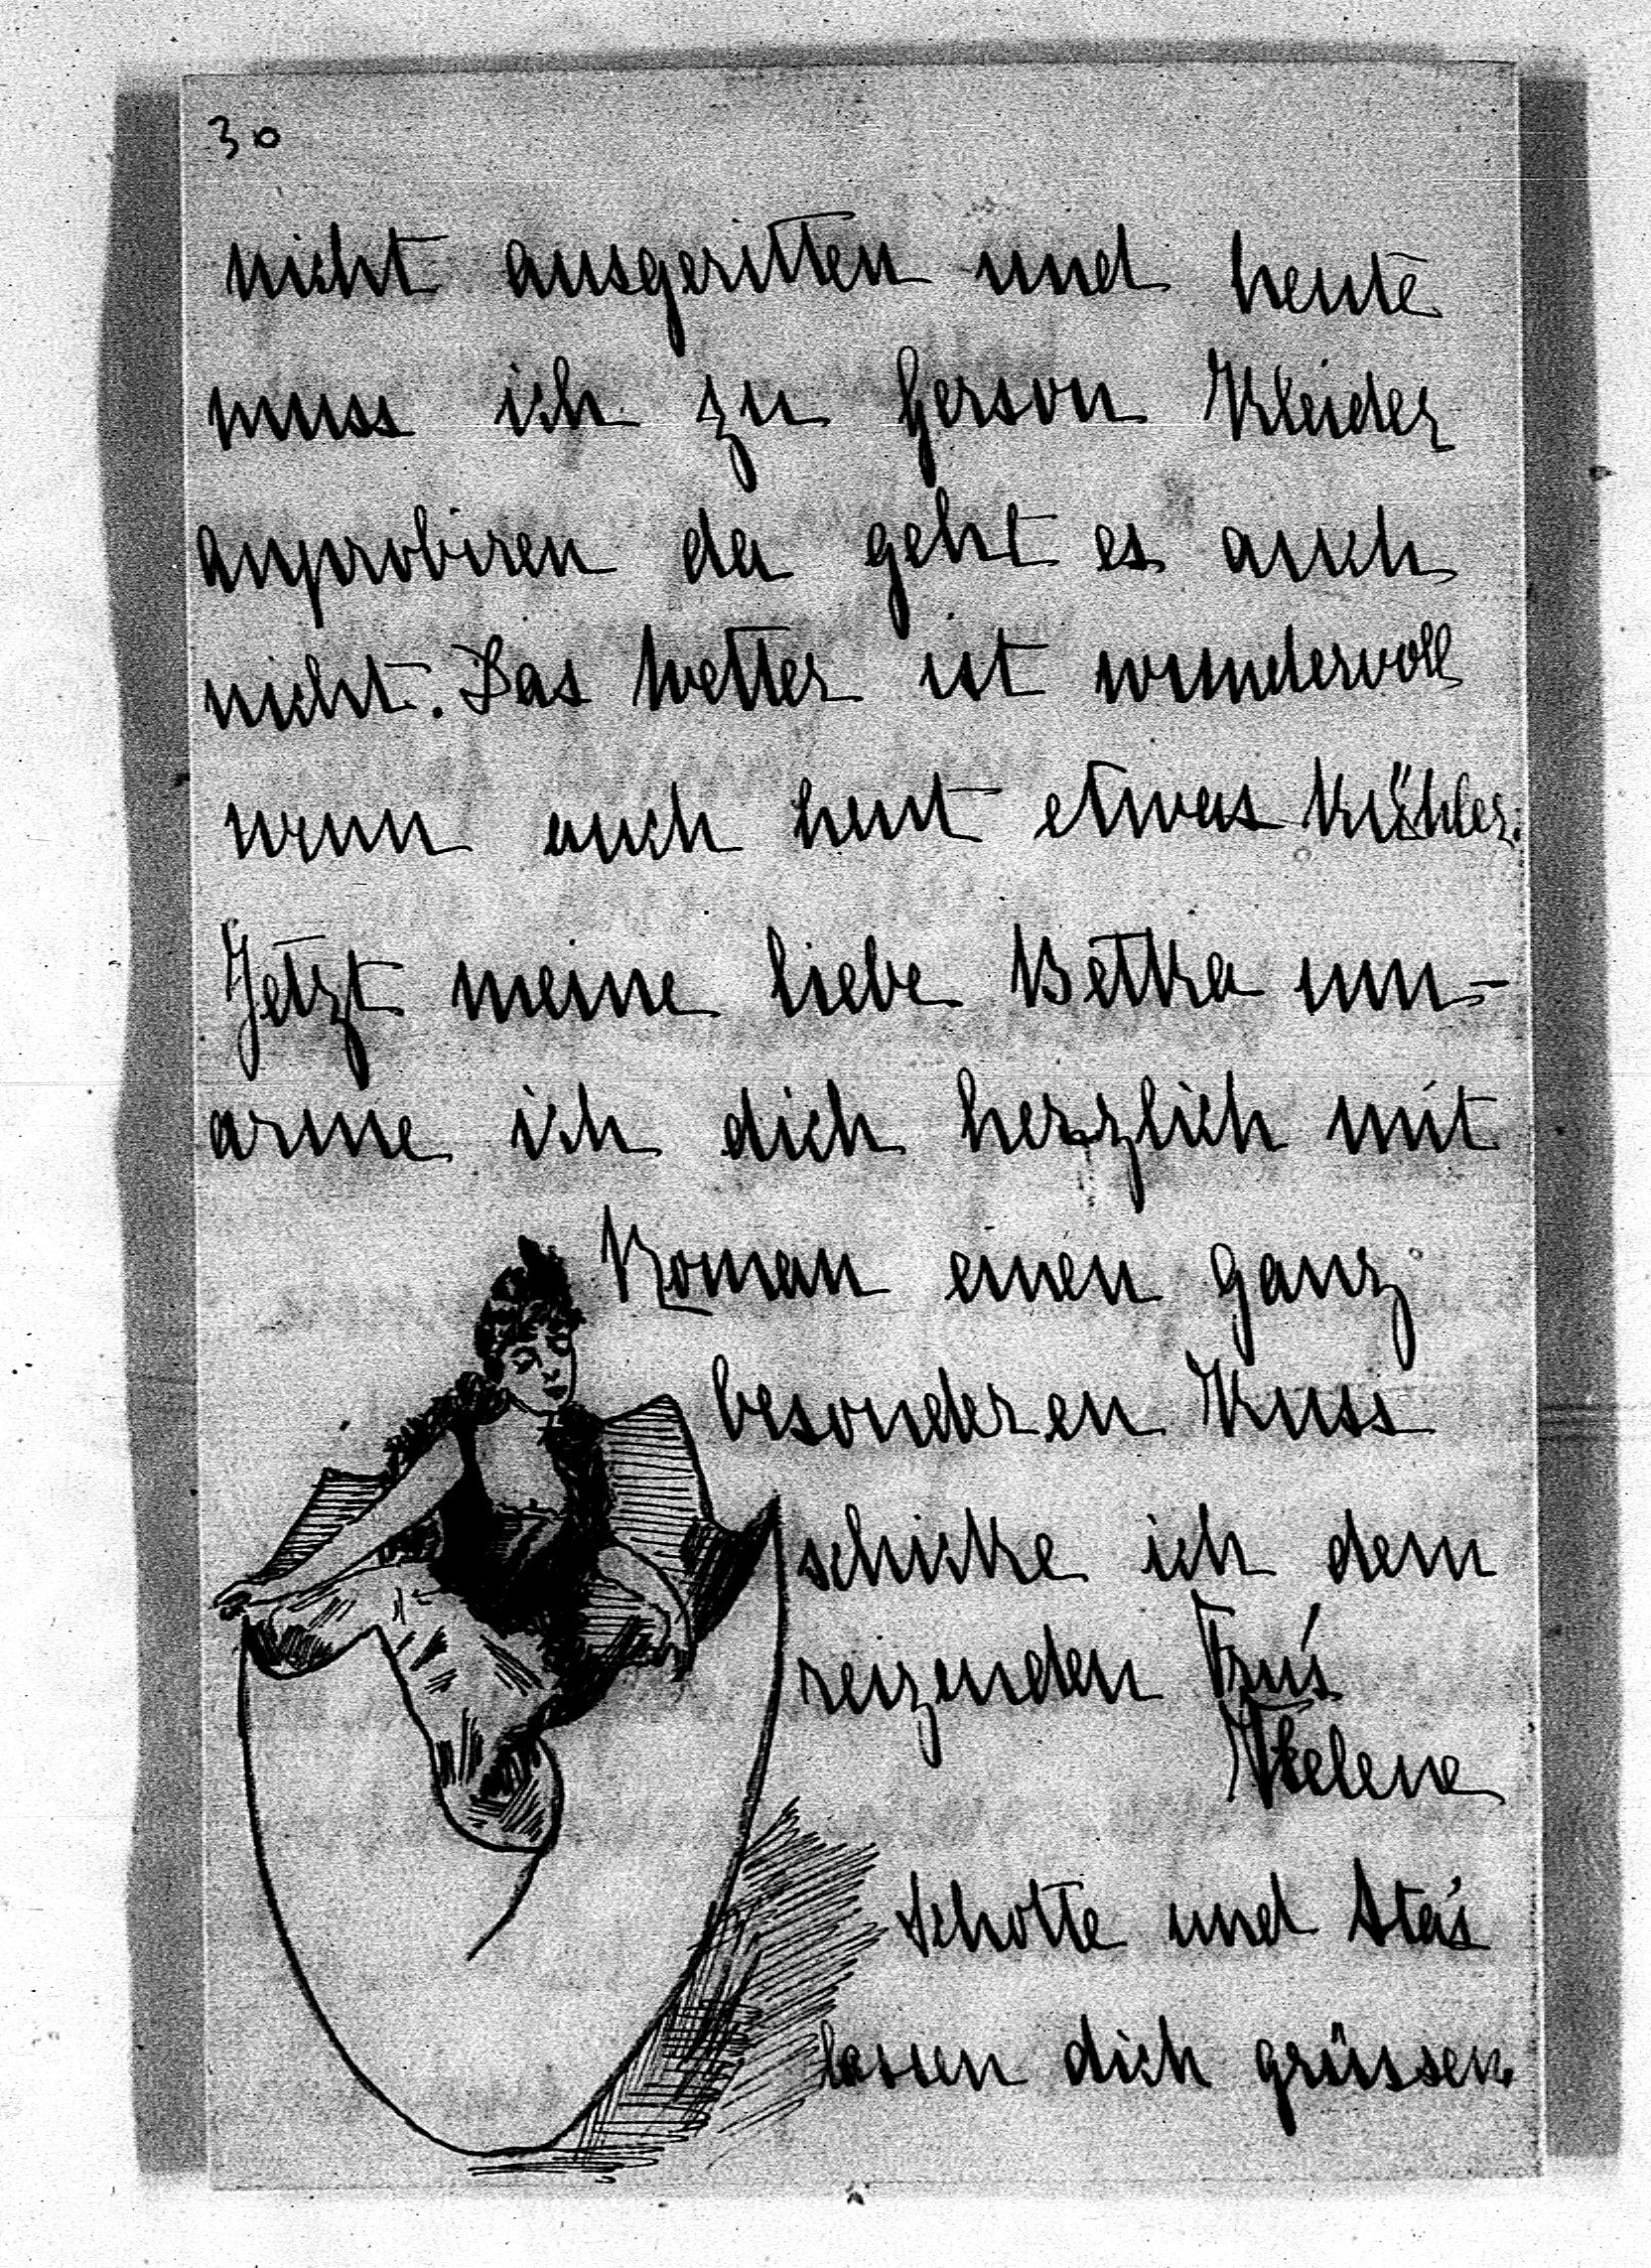 30
nicht ausgeritten und heute
muss ich zu Gerson Kleider
anprobiren da geht es auch
nicht. Das Wetter ist wundervoll
wenn auch heut etwas kühler.
Jetzt meine liebe Betka um-
arme ich dich herzlich mit
Roman einen ganz
besonderen Kuss
schicke ich dem
reizenden
Helene
Schotte und Staś
lassen dich grüssen.